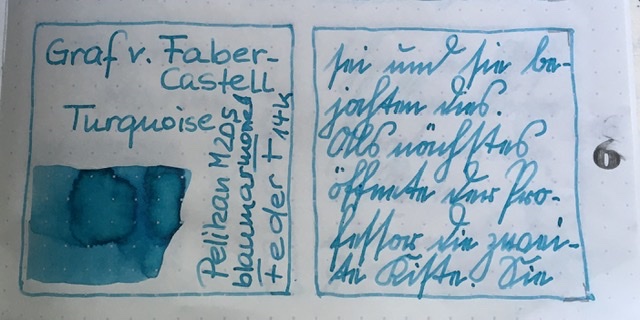 Graf v. Faber-
Castell
Turquoise
Pelikan M205
blaumarmoriert
Feder F 14K
sei und sie be-
jahten dies.
Als nächstes
öffnete der Pro-
fessor die zwei-
te Kiste. Sie
6